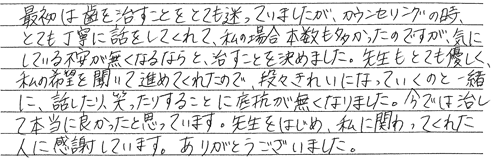 最初は歯を治すことをとても迷っていましたが、カウンセリングの時、
とても丁寧に話をしてくれて、私の場合本数も多かったのですが、気に
している不安が無くなるならと、治すことを決めました。先生もとても優しく、
私の希望を聞いて進めてくれたので、段々きれいになっていくのと一緒
に、話したり、笑ったりすることに抵抗が無くなりました。今では治し
て本当に良かったと思っています。先生をはじめ、私に関わってくれた
人に感謝しています。ありがとうございました。